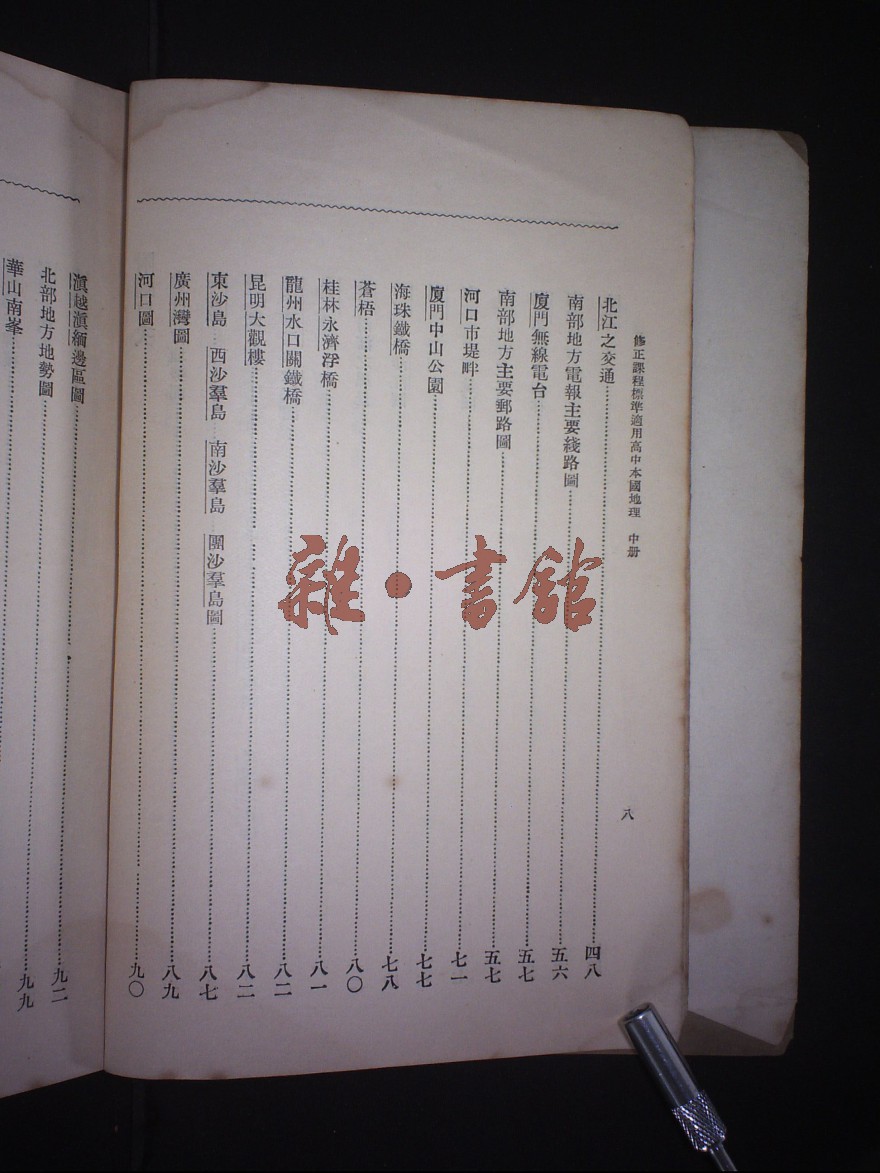 修正課程標準適用高中本國地理　中册
八
北江之交通…………四八
南部地方電報主要綫路圖…………五六
廈門無線電台…………五七
南部地方主要郵路圖…………五七
河口市堤畔…………七一
廈門中山公園…………七七
海珠鐵橋…………七八
蒼梧…………八〇
桂林永濟浮橋…………八一
龍州水口關鐵橋…………八二
昆明大觀樓…………八二
東沙島　西沙羣島　南沙羣島　團沙羣島圖…………八七
廣州灣圖…………八九
河口圖…………九〇
滇越滇緬邊區圖…………九二
北部地方地勢圖…………九九
華山南峯…………
雜·書館